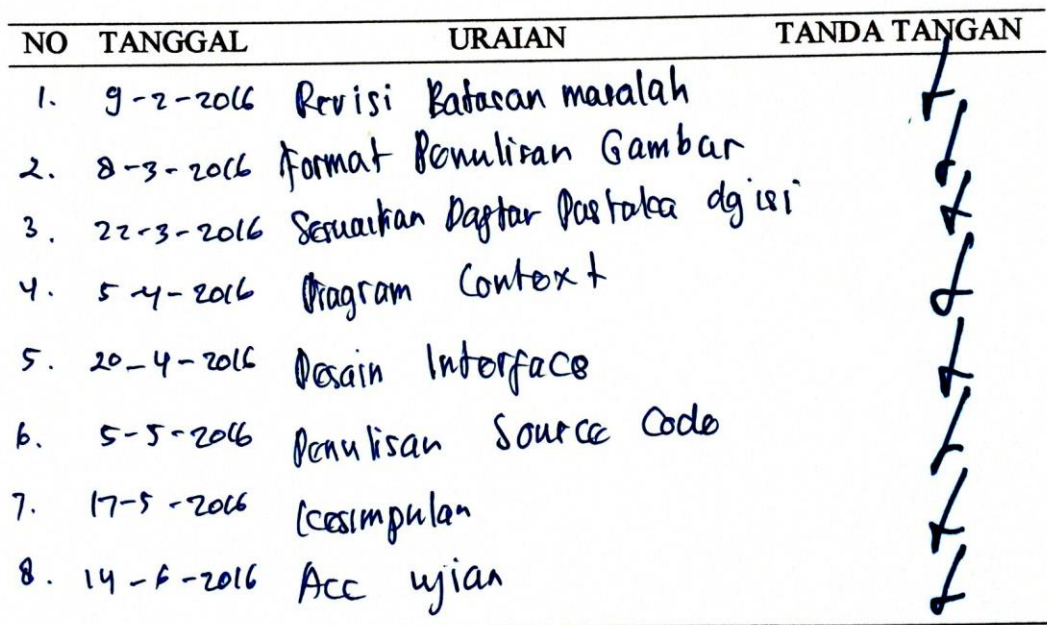 NO TANGGAL URAIAN TANDA TANGAN
1. 9-2-2016 Revisi Batasan masalah
2. 8-3-2016 Format Penulisan Gambar
3. 22-3-2016 Sesuaikan Daftar Pustaka dg isi
4. 5-4-2016 Diagram Context
5. 20-4-2016 Desain Interface
6. 5-5-2016 Penulisan Source Code
7. 17-5-2016 Kesimpulan
8. 14-6-2016 Acc ujian